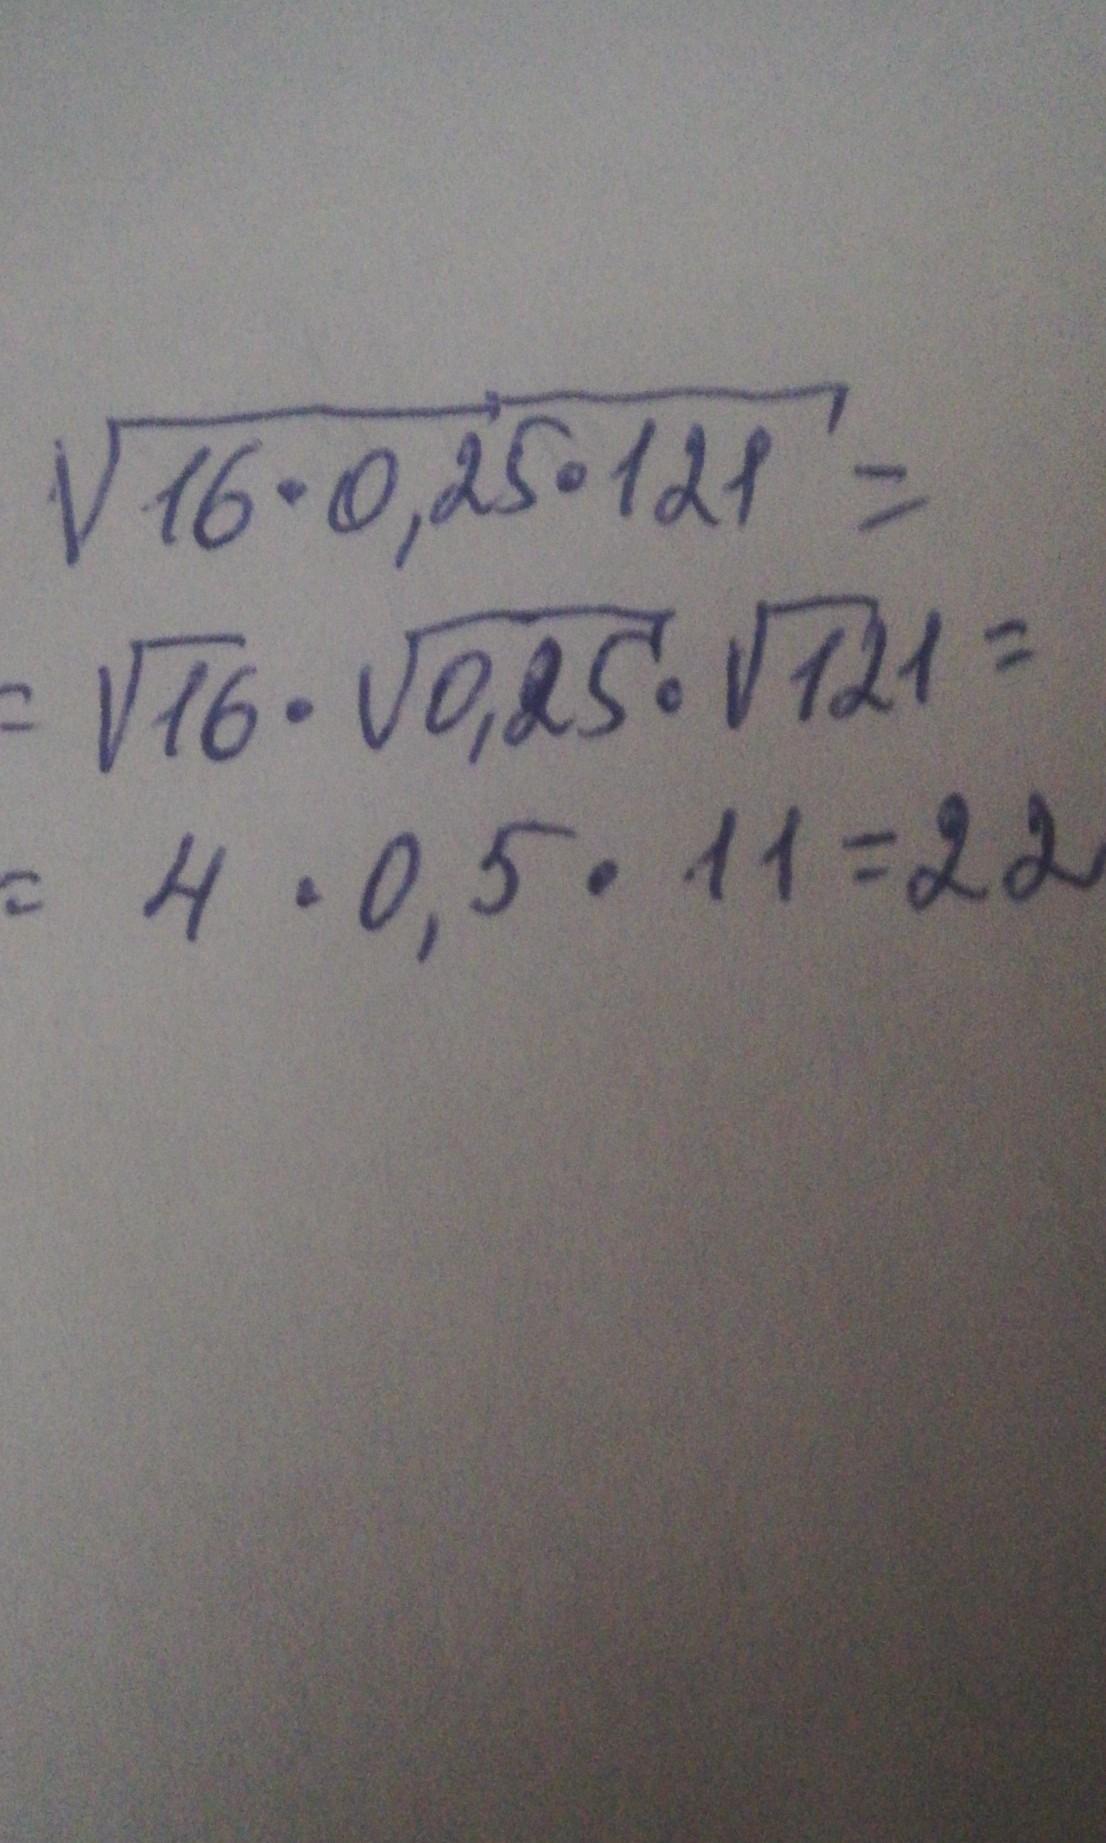 √16·0,25·121 =
= √16·√0,25·√121 =
= 4·0,5·11=22